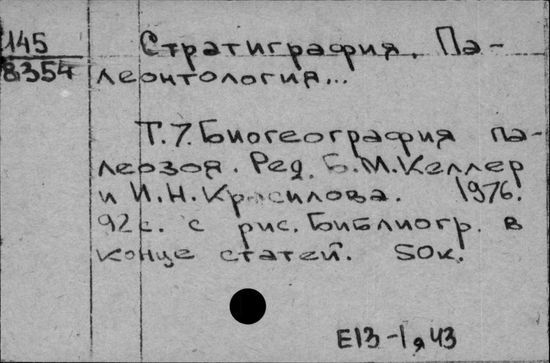 145
8354
Стратиграфия. Па-
леонтология...
Т.7. Биогеография па-
леозоя. Ред. Б.М. Келлер
и И.Н. Красилова. 1976.
92с. с рис. Библиогр. в
конце статей. 50к.
E13-1я43